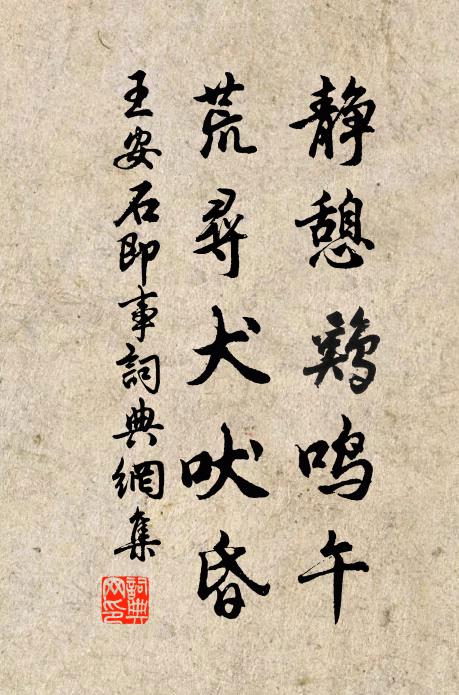 静憩鷄鸣午
荒尋犬吠昏
王安石即事詞典網集
詞典网印